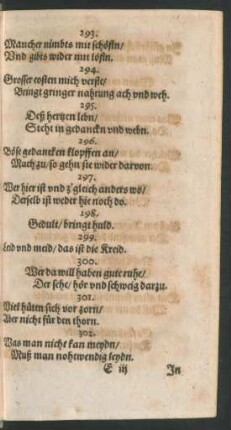 293.
Mancher nimbts mit schöfln/
Vnd gibts wider mit löfln.
294.
Grosser costen mich verste/
Bringt gringer nahrung ach vnd weh.
295.
Deß hertzen lebn/
Steht in gedancken vnd webn.
296.
Böse gedancken klopffen an/
Mach zu/ so gehn sie wider darvon.
297.
Wer hier ist vnd z'gleich anders wo/
Derselb ist weder hie noch do.
298.
Gedult/ bringt huld.
299.
Leid vnd meid/ das ist die Kreid.
300.
Wer da will haben gute ruhe/
Der sehe/ hör vnd schweig darzu.
301.
Viel hüten sich vor zorn/
Aber nicht für den thorn.
302.
Was man nicht kan meydn/
Muß man nohtwendig leydn.
E iij In